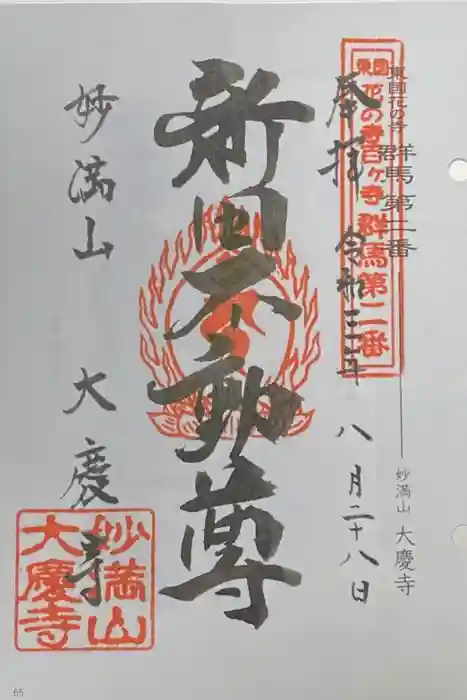 東国花の寺
群馬 第二番
妙満山 大慶寺
東国花の寺百ヶ寺群馬第二番
奉拝 令和三年 八月二十八日
新田不動尊
妙満山 大慶寺
妙満山
大慶寺
65